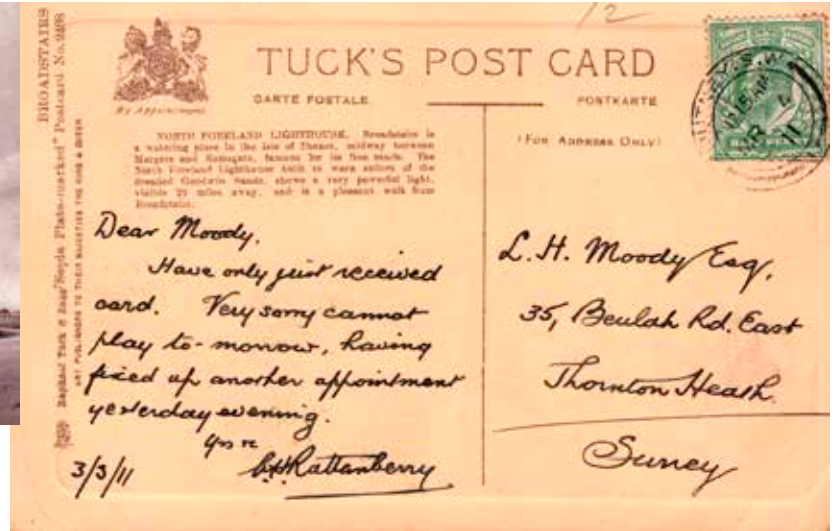 BROADSTAIRS
Raphael Tuck & Sons' "Sepia Plate-marked" Postcard No. 2468
ART PUBLISHERS TO THEIR MAJESTIES THE KING & QUEEN
By Appointment
12
TUCK'S POST CARD
CARTE POSTALE.
POSTKARTE
(FOR ADDRESS ONLY)
NORTH FORELAND LIGHTHOUSE. Broadstairs is
a watering place in the Isle of Thanet, midway between
Margate and Ramsgate, famous for its fine sands. The
North Foreland Lighthouse built to warn sailors of the
dreaded Goodwin Sands, shows a very powerful light,
visible 20 miles away, and is a pleasant walk from
Broadstairs.
Dear Moody,
Have only just received
card. Very sorry cannot
play to-morrow, having
fixed up another appointment
yesterday evening.
3/3/11
Rattenberry
L. H. Moody Esq,
35, Beulah Rd. East
Thornton Heath
Surrey
PUTNEY. S.W.
11